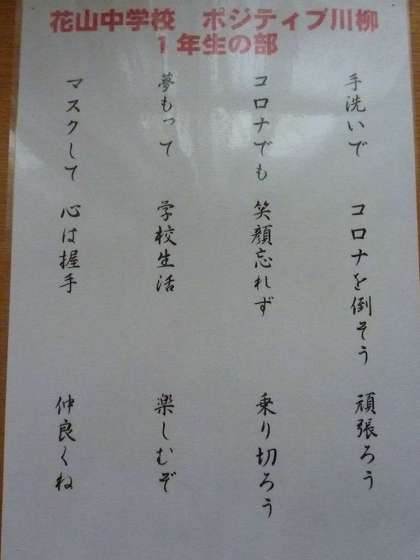 花山中学校 ポジティブ川柳
1年生の部
手洗いで コロナを倒そう 頑張ろう
コロナでも 笑顔忘れず 乗り切ろう
夢もって 学校生活 楽しむぞ
マスクして 心は握手 仲良くね